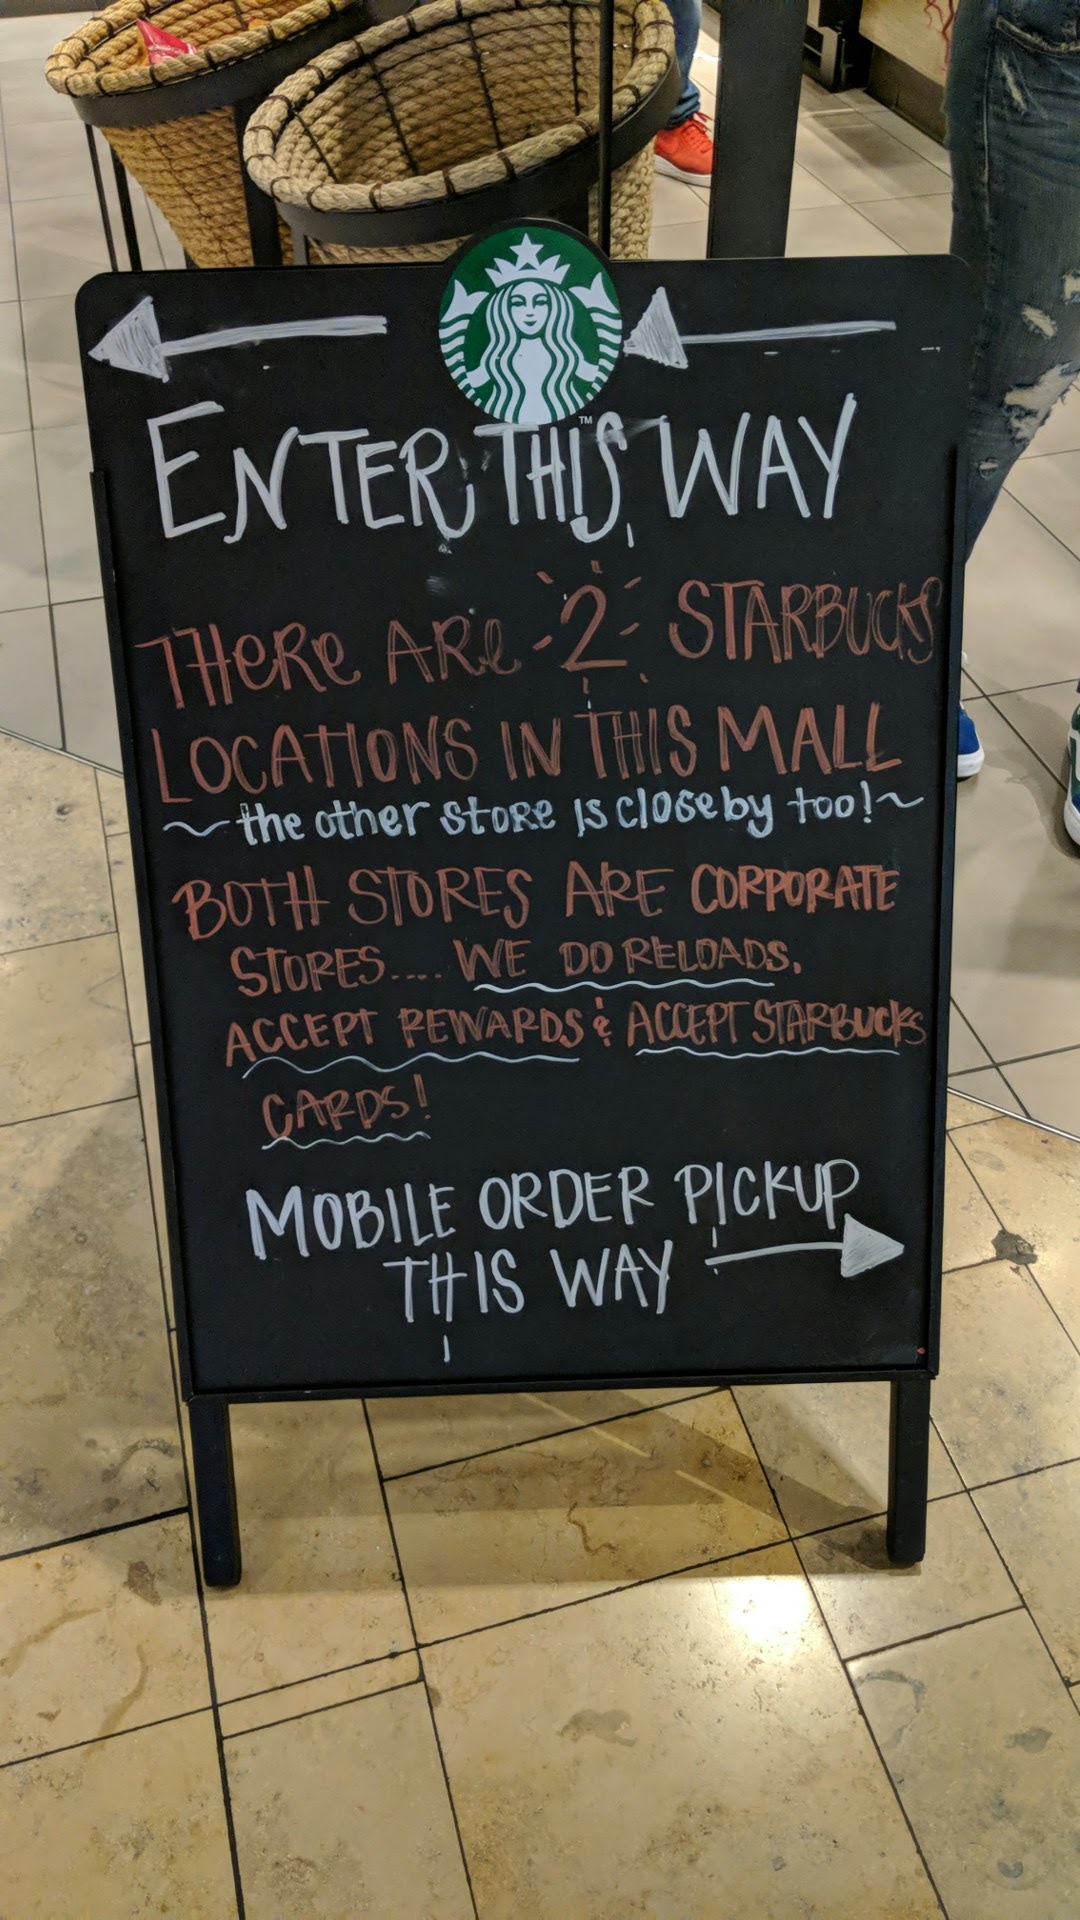 ENTER THIS WAY
THERE ARE 2 STARBUCKS
LOCATIONS IN THIS MALL
~ the other store is closeby too! ~
BOTH STORES ARE CORPORATE
STORES.... WE DO RELOADS.
ACCEPT REWARDS & ACCEPT STARBUCKS
CARDS!
MOBILE ORDER PICKUP
THIS WAY